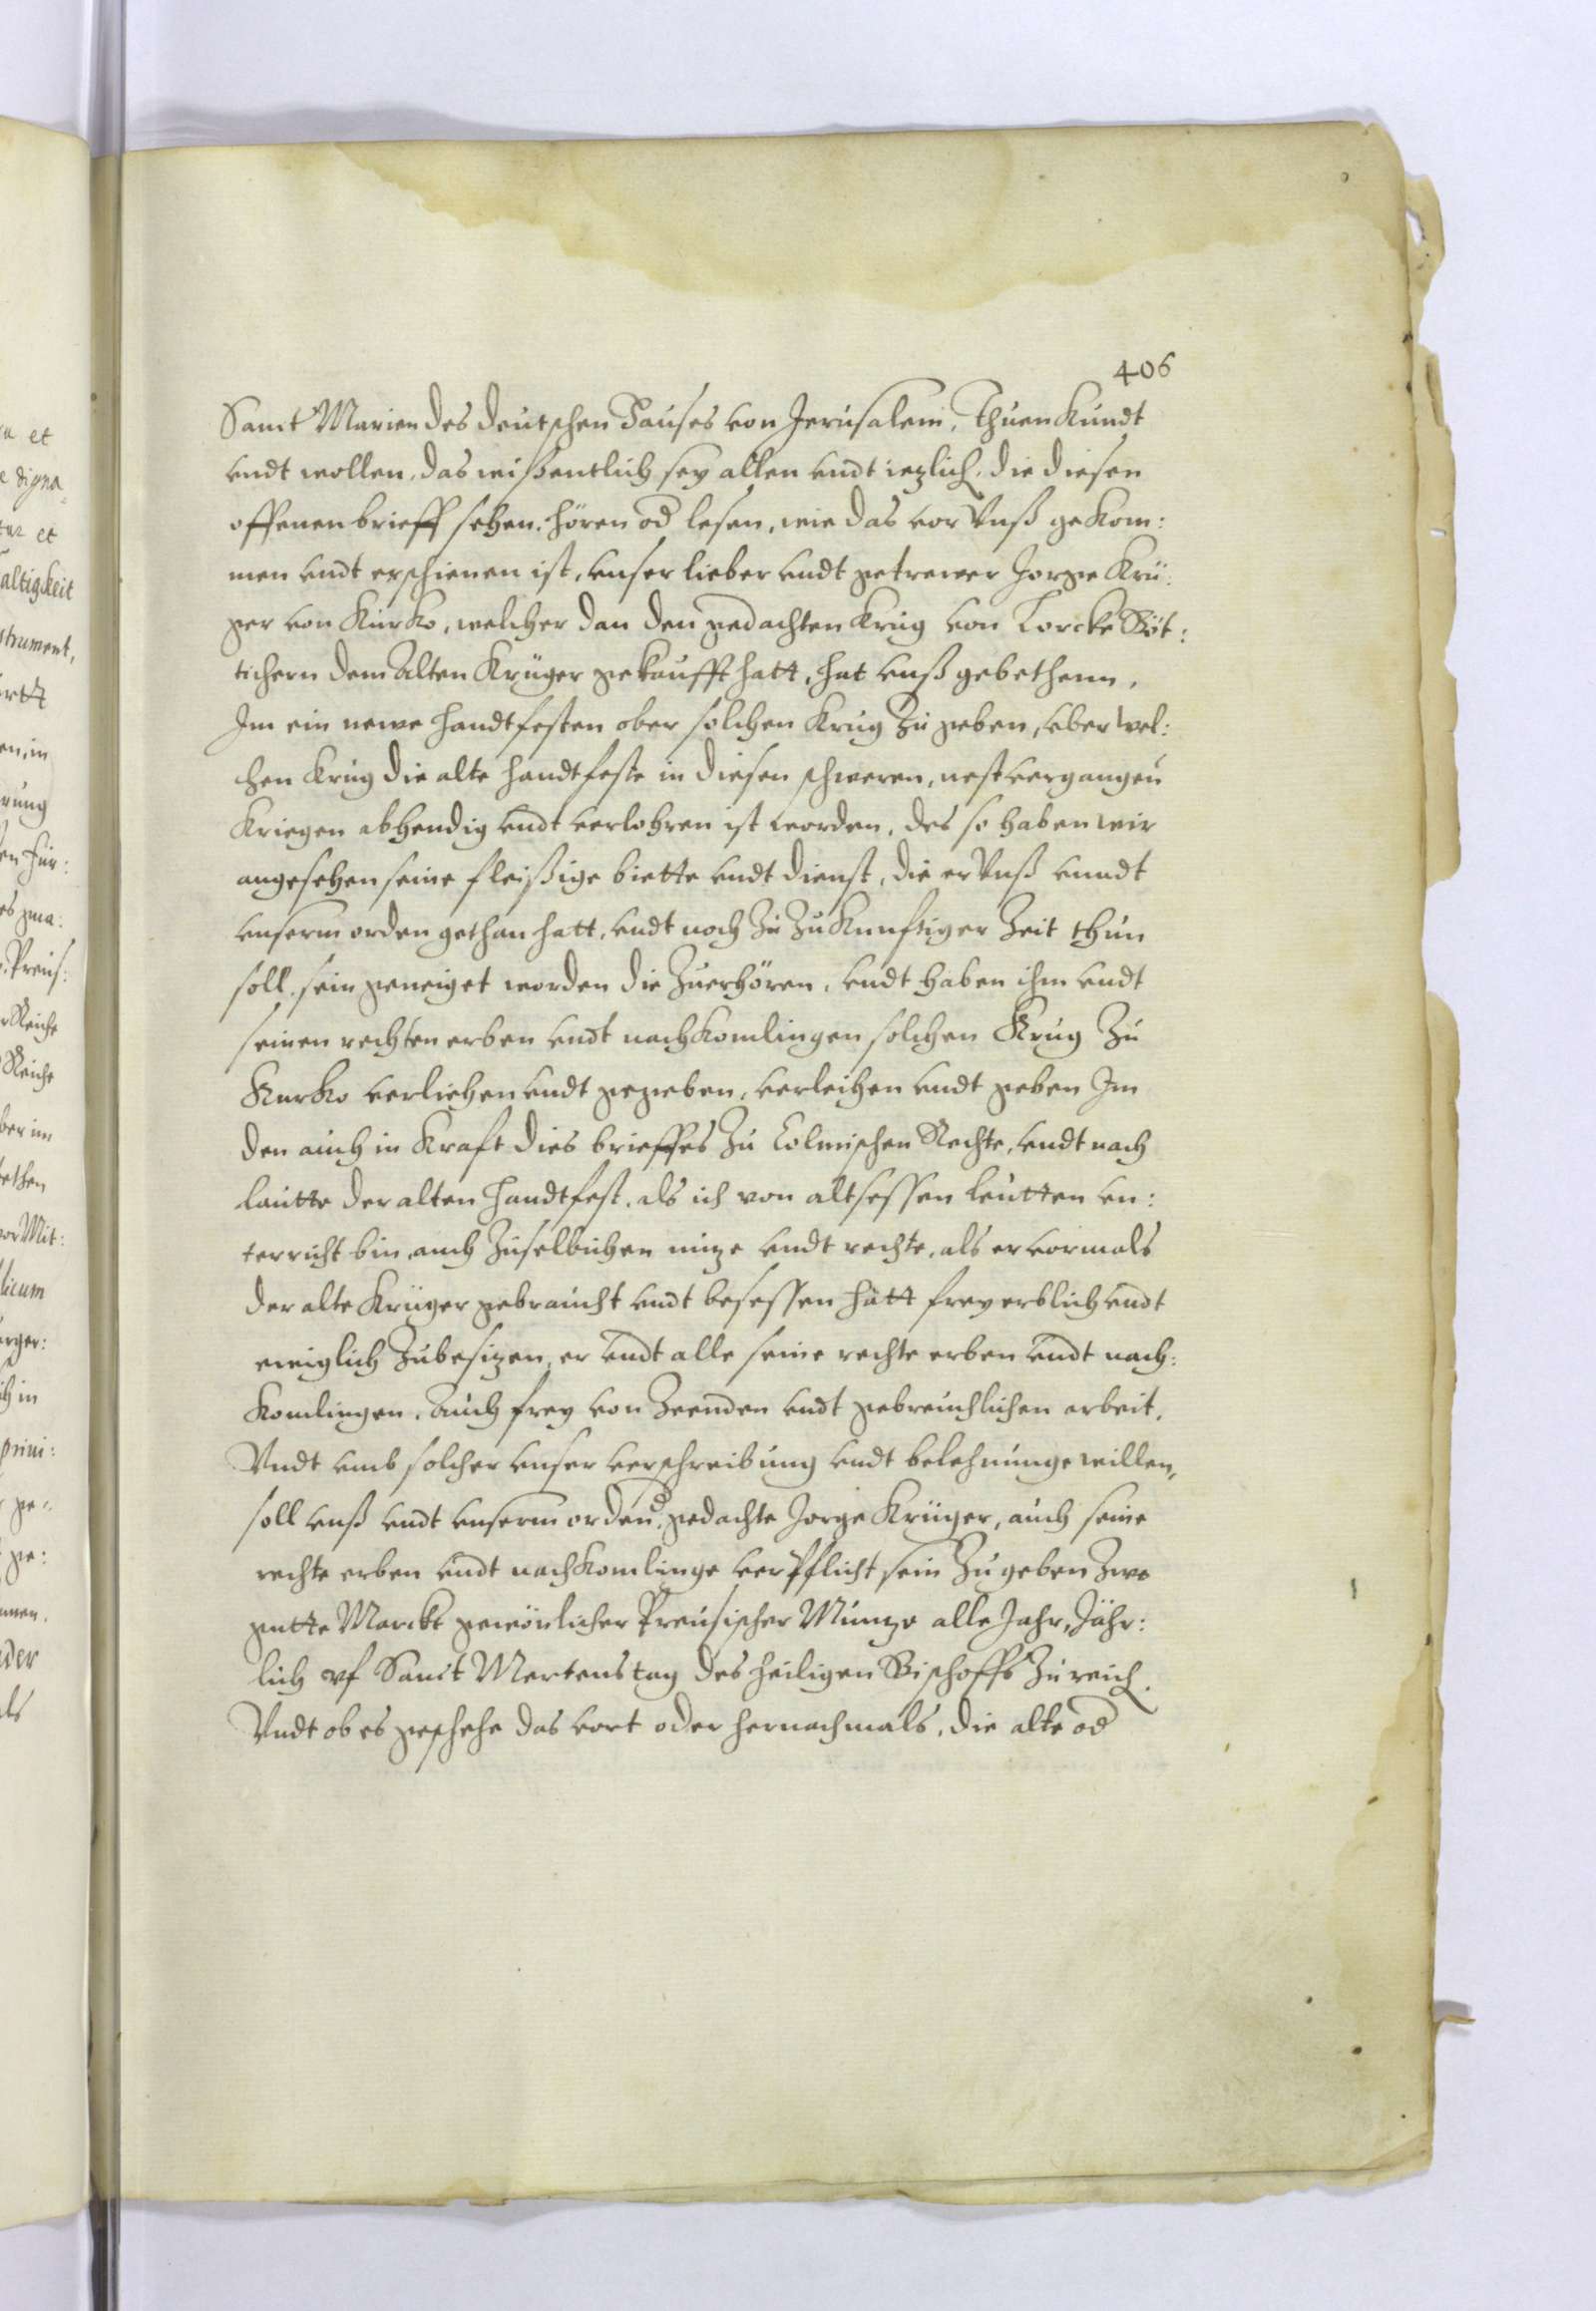 406
Sanct Marien des deutschen Hauses von Jerusalem, Thuen Kundt
undt wollen, das wißentlich sey allen undt iezlich. die diesen
offenen brieff sehen, hören od lesen, wie das vor Unß gekom:
men undt erschienen ist, unser lieber undt getrewer Jorge Krü:
ger von Kurko, welcher dan den gedachten Krug von Böt:
tichern dem Alten Krüger gekaufft hatt, hat unß gebethenn,
Im ein newe handtfesten ober solchen Krug zu geben, uber wel:
chen Krug die alte handtfeste in diesen schweren, nest vergangen
Kriegen abhendig undt verlohren ist worden, des so haben wir
angesehen seine fleißige biette undt dienst, die er Unß unndt
unserm orden gethan hatt, undt noch zu zukunftiger Zeit thun
soll, sein geneiget worden die zuerhören, undt haben ihm undt
seinen rechten erben undt nachkomlingen solchen Krug zu
Kurko verliehen undt gegeben, verleihen undt geben Im
den auch in Kraft dies brieffes zu Colmischen Rechte, undt nach
lautte der alten handtfest, als ich von altsessen leutten un:
terricht bin, auch zu selbichen nuze undt rechte, als er vormals
der alte Krüger gebraucht undt besessen hatt frey erblich undt
ewiglich zubesizen, er undt alle seine rechte erben undt nach:
komlingen, auch frey von Zeenden undt gebreuchlichen arbeit,
Undt umb solcher unser verschreibung undt belehnunge willen,
soll unß undt unserm orden, d gedachte Jorge Krüger, auch seine
rechte erben undt nachkomlinge verpflicht sein zugeben zwo
gutte Marckt gewönlicher Preusischer Müntze alle Jahr, Jähr:
lich uf Sanct Mertens tag des heiligen Bischoffs zu reich.
Undt ob es geschehe das vort oder hernachmals, die alte od